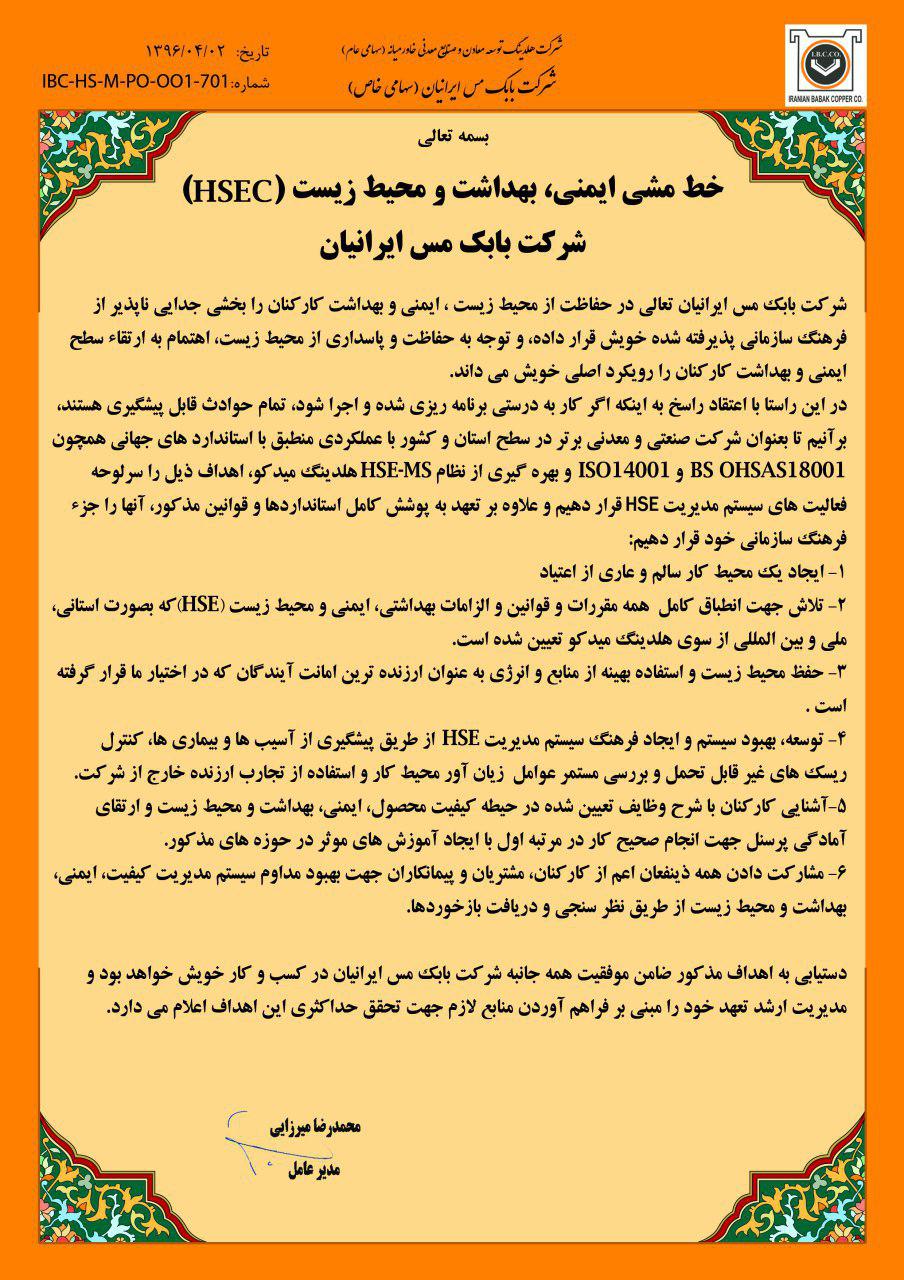 شرکت هلدینگ توسعه معادن و صنایع معدنی خاورمیانه (سهامی عام)
شرکت بابک مس ایرانیان (سهامی خاص)
تاریخ: ۱۳۹۶/۰۴/۰۲
شماره:IBC-HS-M-PO-OO1-701
I.B.C.CO.
IRANIAN BABAK COPPER CO.
بسمه تعالی
خط مشی ایمنی، بهداشت و محیط زیست (HSEC)
شرکت بابک مس ایرانیان
شرکت بابک مس ایرانیان تعالی در حفاظت از محیط زیست ، ایمنی و بهداشت کارکنان را بخشی جدایی ناپذیر از
فرهنگ سازمانی پذیرفته شده خویش قرار داده، و توجه به حفاظت و پاسداری از محیط زیست، اهتمام به ارتقاء سطح
ایمنی و بهداشت کارکنان را رویکرد اصلی خویش می داند.
در این راستا با اعتقاد راسخ به اینکه اگر کار به درستی برنامه ریزی شده و اجرا شود، تمام حوادث قابل پیشگیری هستند،
برآنیم تا بعنوان شرکت صنعتی و معدنی برتر در سطح استان و کشور با عملکردی منطبق با استاندارد های جهانی همچون
BS OHSAS18001 و ISO14001 و بهره گیری از نظام HSE-MS هلدینگ میدکو، اهداف ذیل را سرلوحه
فعالیت های سیستم مدیریت HSE قرار دهیم و علاوه بر تعهد به پوشش کامل استانداردها و قوانین مذکور، آنها را جزء
فرهنگ سازمانی خود قرار دهیم:
۱- ایجاد یک محیط کار سالم و عاری از اعتیاد
۲- تلاش جهت انطباق کامل همه مقررات و قوانین و الزامات بهداشتی، ایمنی و محیط زیست (HSE)که بصورت استانی،
ملی و بین المللی از سوی هلدینگ میدکو تعیین شده است.
۳- حفظ محیط زیست و استفاده بهینه از منابع و انرژی به عنوان ارزنده ترین امانت آیندگان که در اختیار ما قرار گرفته
است .
۴- توسعه، بهبود سیستم و ایجاد فرهنگ سیستم مدیریت HSE از طریق پیشگیری از آسیب ها و بیماری ها، کنترل
ریسک های غیر قابل تحمل و بررسی مستمر عوامل زیان آور محیط کار و استفاده از تجارب ارزنده خارج از شرکت.
۵-آشنایی کارکنان با شرح وظایف تعیین شده در حیطه کیفیت محصول، ایمنی، بهداشت و محیط زیست و ارتقای
آمادگی پرسنل جهت انجام صحیح کار در مرتبه اول با ایجاد آموزش های موثر در حوزه های مذکور.
۶- مشارکت دادن همه ذینفعان اعم از کارکنان، مشتریان و پیمانکاران جهت بهبود مداوم سیستم مدیریت کیفیت، ایمنی،
بهداشت و محیط زیست از طریق نظر سنجی و دریافت بازخوردها.
دستیابی به اهداف مذکور ضامن موفقیت همه جانبه شرکت بابک مس ایرانیان در کسب و کار خویش خواهد بود و
مدیریت ارشد تعهد خود را مبنی بر فراهم آوردن منابع لازم جهت تحقق حداکثری این اهداف اعلام می دارد.
محمدرضا میرزایی
مدیر عامل